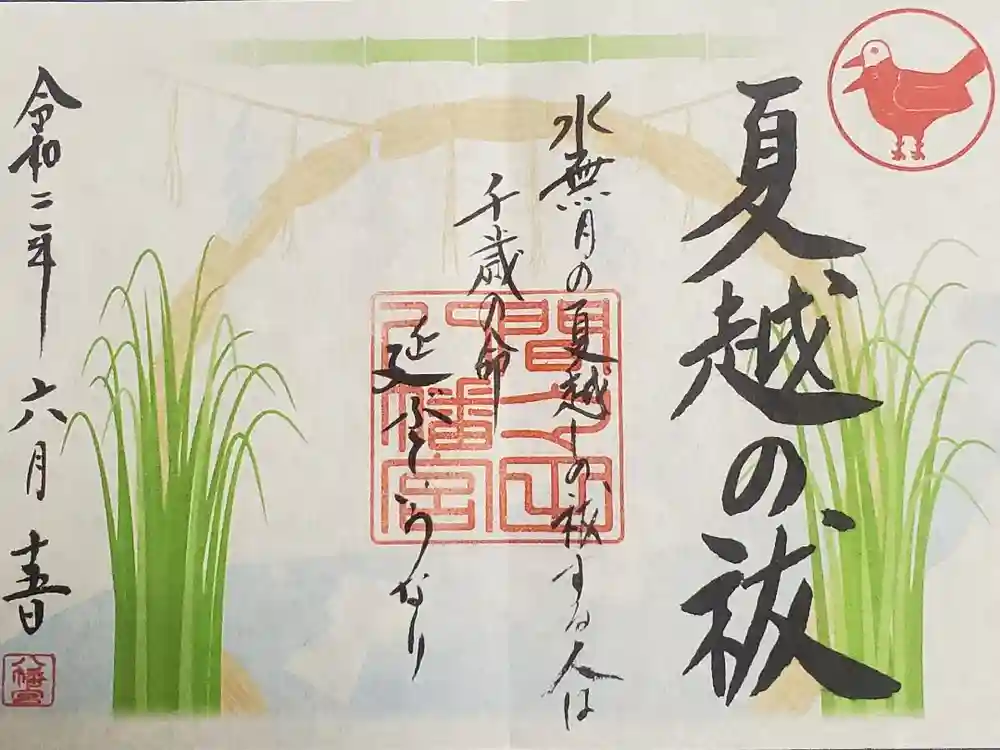 夏越の祓
水無月の夏越しの祓する人は
千歳の命
延ぶというなり
令和二年 六月 十五日
間々田
八幡宮
八幡宮